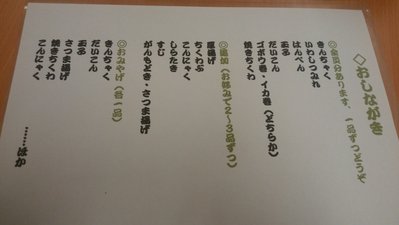 ◇おしながき
◎全員分あります、一品ずつどうぞ
きんちゃく
いわしつみれ
はんぺん
玉子
だいこん
ゴボウ巻・イカ巻（どちらか）
焼きちくわ
◎追加（お好みで2～3品ずつ）
厚揚げ
ちくわぶ
こんにゃく
しらたき
すじ
がんもどき・さつま揚げ
◎おみやげ（各一品）
きんちゃく
だいこん
玉子
さつま揚げ
焼きちくわ
こんにゃく
……ほか